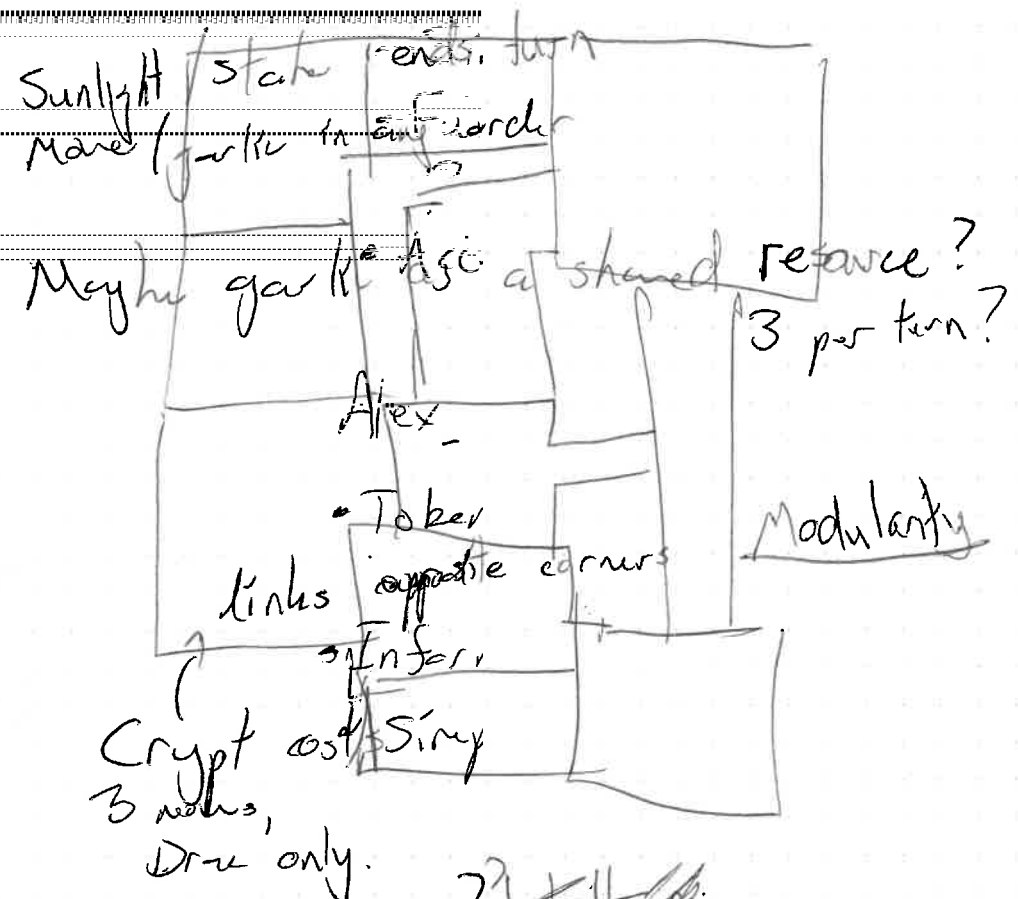 Sunlight / state ends turn
Move / garlic in any order
Maybe garlic as a shared resource?
3 per turn?
Alex
• Token
Modularity
links opposite corners
Crypt costs
3 moves,
Drac only.